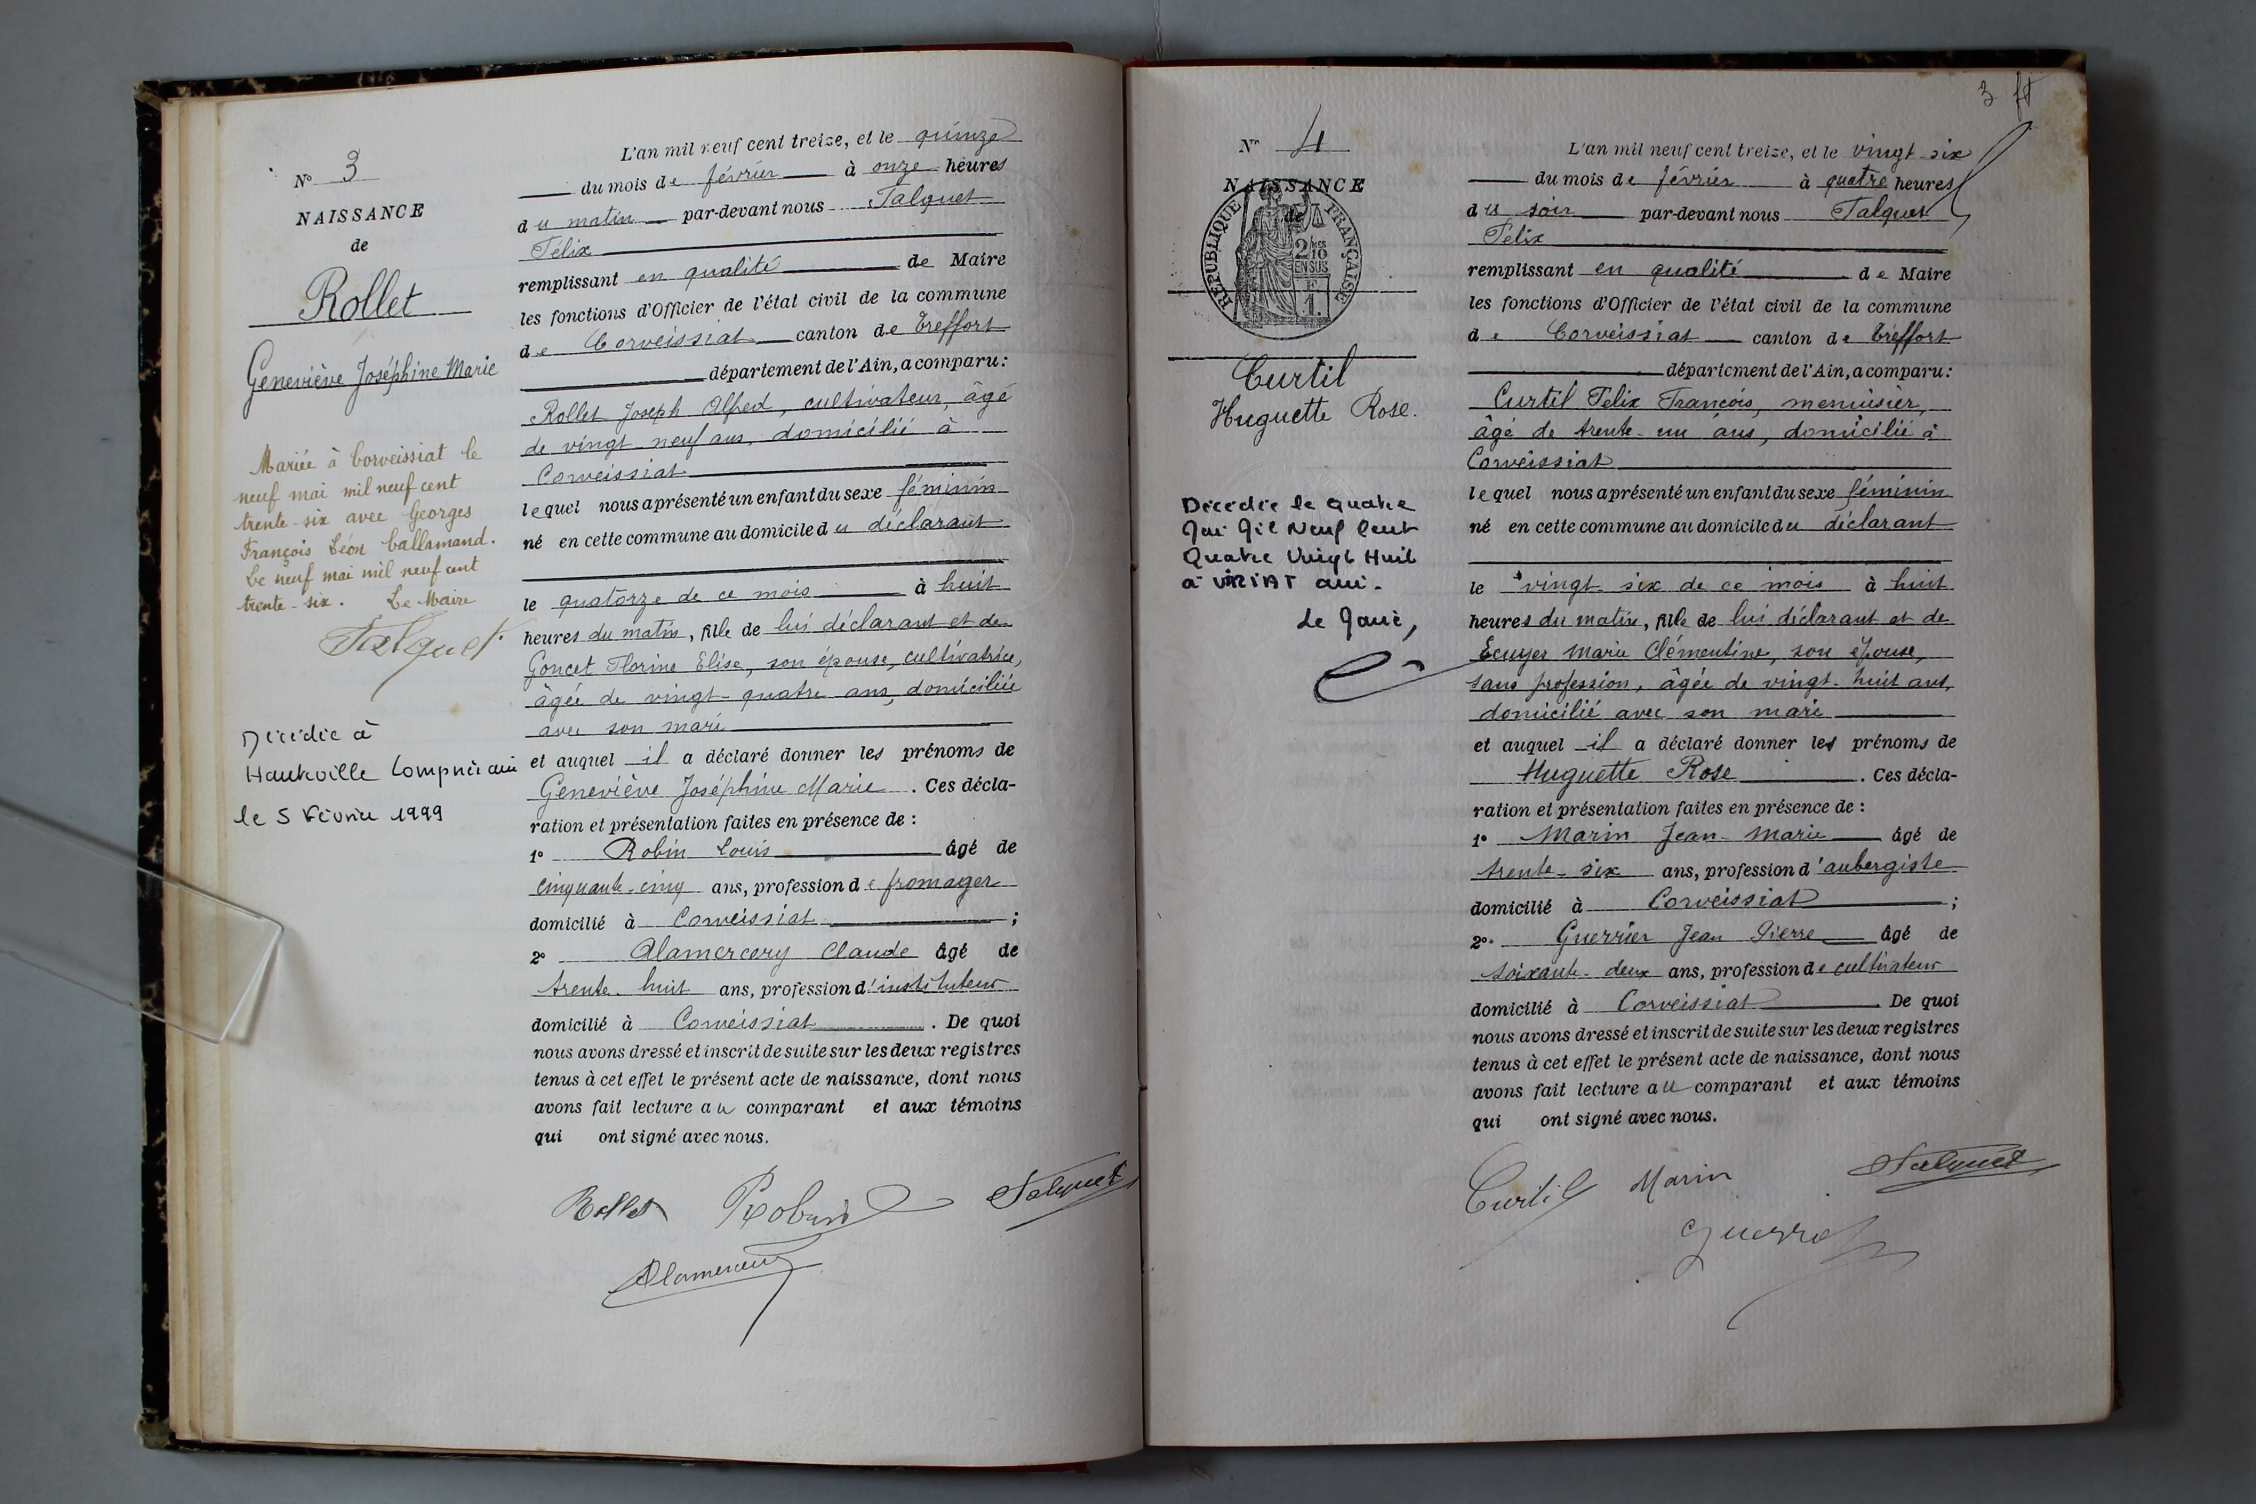 N° 3
NAISSANCE
de
Rollet
Geneviève Joséphine Marie
Mariée à Corveissiat le
neuf mai mil neuf cent
trente-six avec Georges
François Léon Callamand.
Le neuf mai mil neuf cent
trente-six. Le Maire
Falquet
Décédée à
Hauteville Lompnès ain
le 5 Février 1999
L'an mil neuf cent treize, et le quinze
du mois de février à onze heures
du matin par-devant nous Falquet
Félix
remplissant en qualité de Maire
les fonctions d'Officier de l'état civil de la commune
de Corveissiat canton de Treffort
département de l'Ain, a comparu :
Rollet Joseph Alfred, cultivateur, âgé
de vingt neuf ans, domicilié à
Corveissiat
lequel nous a présenté un enfant du sexe féminin
né en cette commune au domicile du déclarant
le quatorze de ce mois à huit
heures du matin, fille de lui déclarant et de
Goncet Florine Elise, son épouse, cultivatrice,
âgée de vingt-quatre ans, domiciliée
avec son mari
et auquel il a déclaré donner les prénoms de
Geneviève Joséphine Marie. Ces décla-
ration et présentation faites en présence de :
1° Robin Louis âgé de
cinquante-cinq ans, profession de fromager
domicilié à Corveissiat ;
2° Alamercery Claude âgé de
trente-huit ans, profession d'instituteur
domicilié à Corveissiat. De quoi
nous avons dressé et inscrit de suite sur les deux registres
tenus à cet effet le présent acte de naissance, dont nous
avons fait lecture au comparant et aux témoins
qui ont signé avec nous.
Rollet Robin Falquet
Alamercery
3
N° 4
NAISSANCE
de
RÉPUBLIQUE FRANÇAISE
2/10
EN SUS
1.
Curtil
Huguette Rose.
Décédée le quatre
Mai Mil Neuf Cent
Quatre Vingt Huit
à VIRIAT ain.
Le Maire,
L'an mil neuf cent treize, et le vingt-six
du mois de février à quatre heures
du soir par-devant nous Falquet
Félix
remplissant en qualité de Maire
les fonctions d'Officier de l'état civil de la commune
de Corveissiat canton de Treffort
département de l'Ain, a comparu :
Curtil Felix François, menuisier,
âgé de trente-un ans, domicilié à
Corveissiat
lequel nous a présenté un enfant du sexe féminin
né en cette commune au domicile du déclarant
le vingt-six de ce mois à huit
heures du matin, fille de lui déclarant et de
Ecuyer Marie Clémentine, son épouse,
sans profession, âgée de vingt-huit ans,
domicilié avec son mari
et auquel il a déclaré donner les prénoms de
Huguette Rose. Ces décla-
ration et présentation faites en présence de :
1° Marin Jean-Marie âgé de
trente-six ans, profession d'aubergiste
domicilié à Corveissiat ;
2° Guerrier Jean Pierre âgé de
soixante-deux ans, profession de cultivateur
domicilié à Corveissiat De quoi
nous avons dressé et inscrit de suite sur les deux registres
tenus à cet effet le présent acte de naissance, dont nous
avons fait lecture au comparant et aux témoins
qui ont signé avec nous.
Curtil Marin Falquet